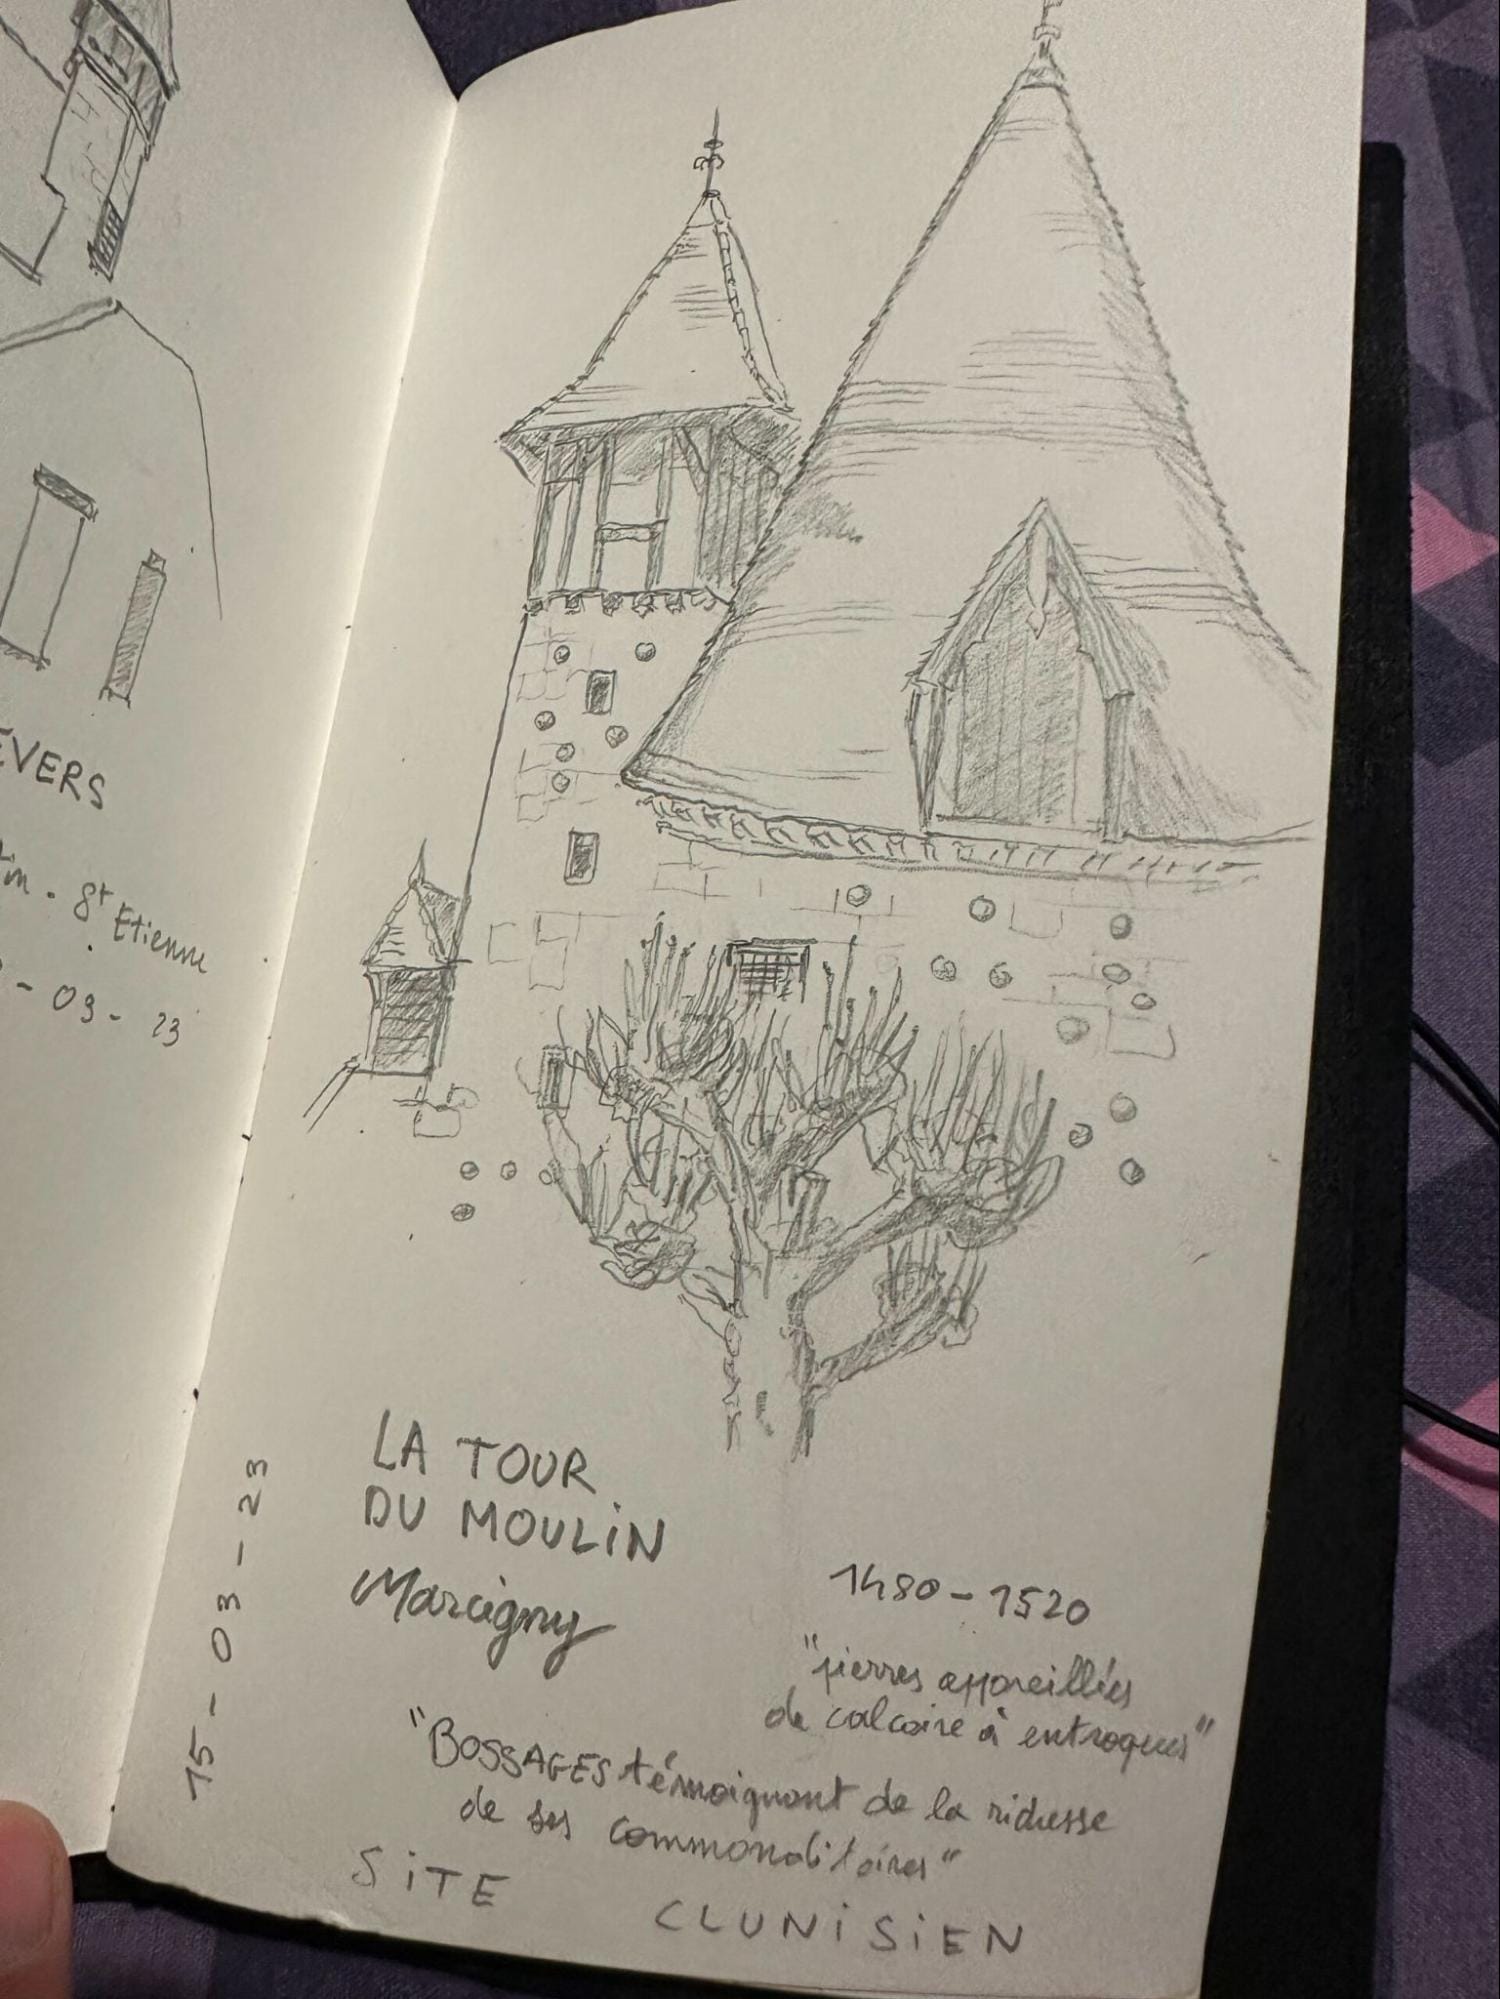 EVERS
St Etienne
- 03 - 23
LA TOUR
DU MOULiN
Marcigny
15-03-23
1480-1520
"pierres appareillées
de calcaire à entroques"
"BOSSAGES témoignant de la richesse
de ses commanditaires"
SiTE CLUNiSiEN